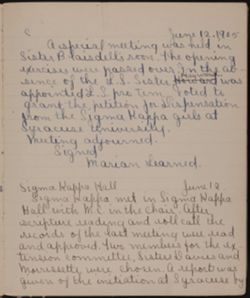 C June 12, 1905
A special meeting was held in
Sister Blaisdell's room. The opening
exercises were passed over. In the ab-
sence of the L.S. Sister was
appointed L.S. pro tem. Voted to
grant the petition for dispensation
from the Sigma Kappa girls at
Syracuse University.
Meeting adjourned.
Signed
Marian Learned.
Sigma Kappa Hall June 12
Sigma Kappa met in Sigma Kappa
Hall with M.C. in the chair. After
scripture reading and roll call the
records of the last meeting were read
and approved. Two members for the ex-
tension committee, Sisters Davies and
Morrissette were chosen. A report was
given of the initiation at Syracuse by